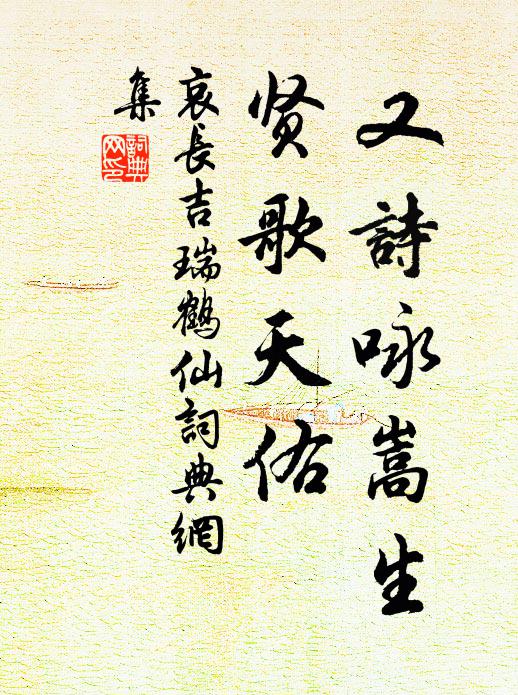 又詩咏嵩生
贤歌天佑
哀長吉瑞鶴仙詞典網
集
詞典
网印